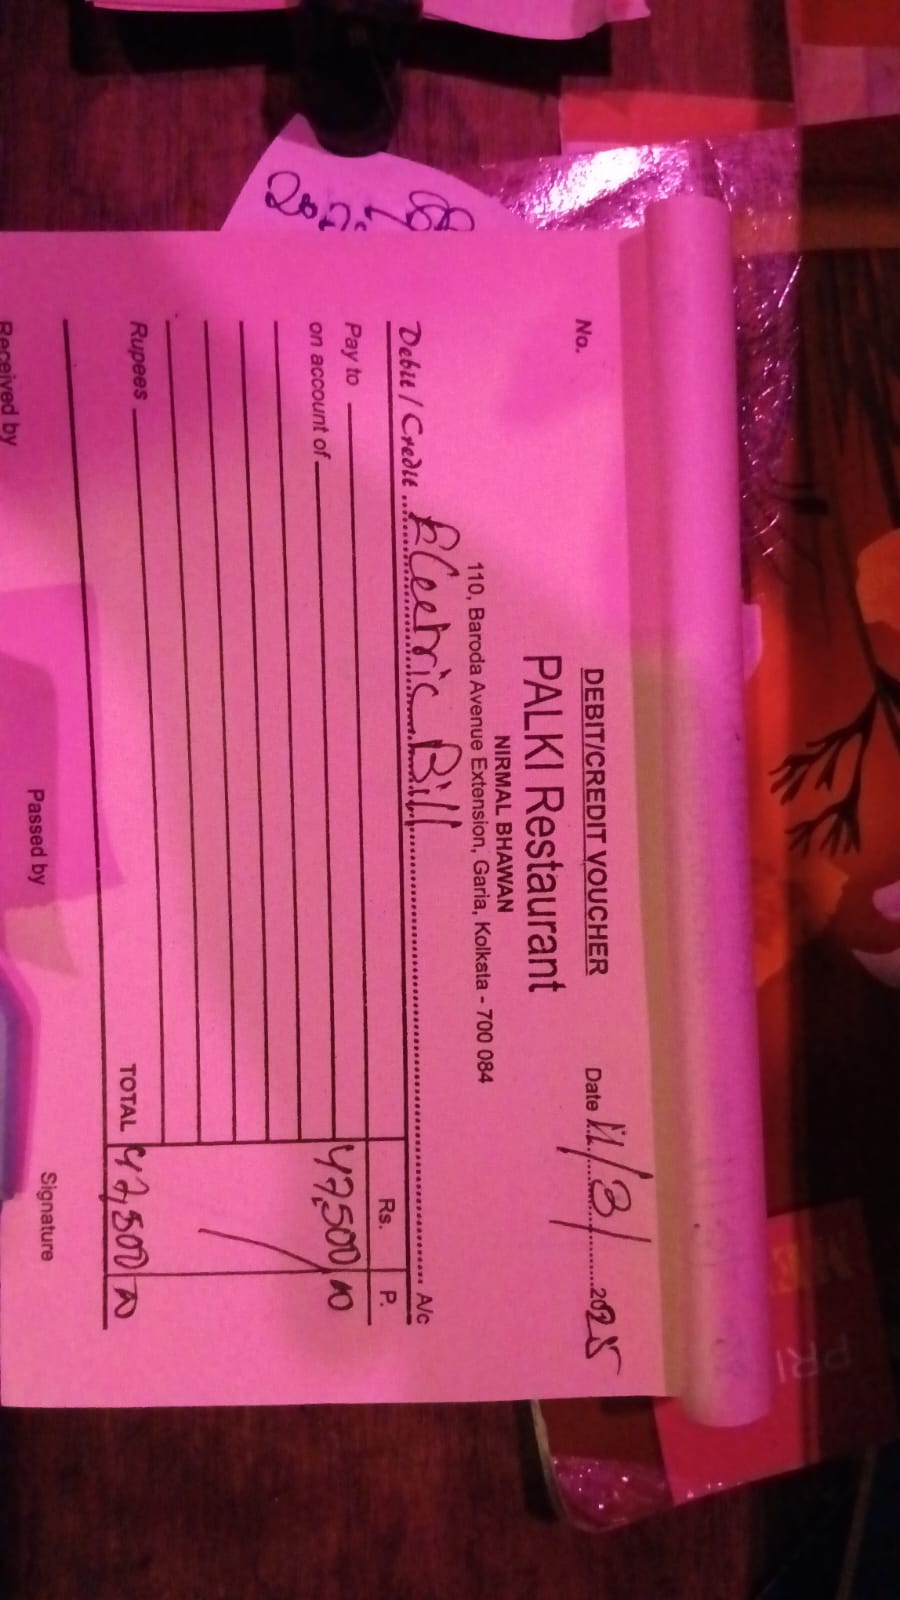 DEBIT/CREDIT VOUCHER
No.
Date 11/3/2025
PALKI Restaurant
NIRMAL BHAWAN
110, Baroda Avenue Extension, Garia, Kolkata - 700 084
Debit / Credit Electric Bill A/c
Rs. P.
Pay to 47,500
on account of
Rupees
TOTAL 47,500
Received by
Passed by
Signature
PRI